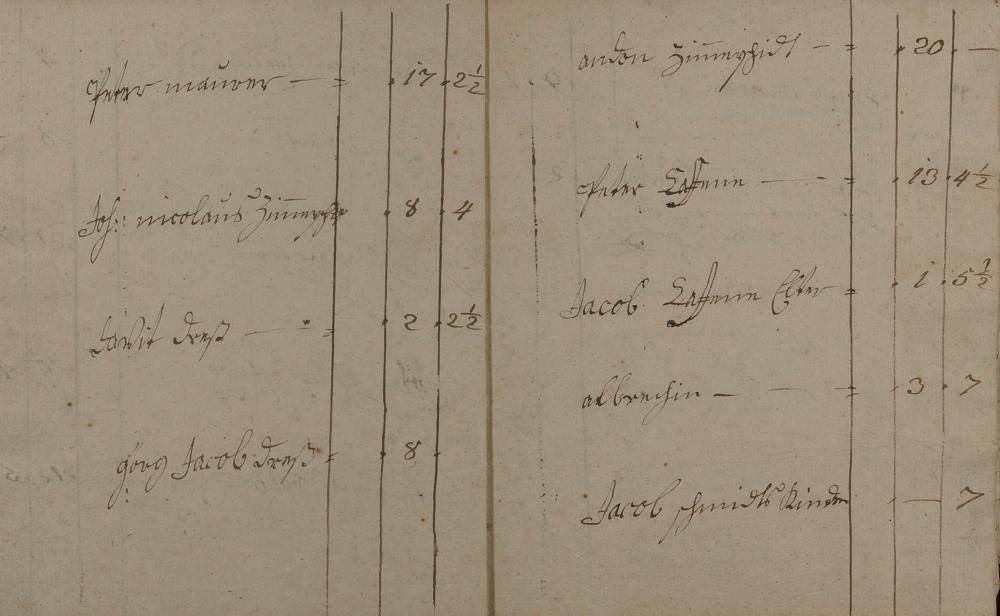 Peter maurer — = . 17 . 2½
Joh: nicolaus Zimerscht . 8 . 4
Davit Dreß — = . 2 . 2½
Görg Jacob Dreß = . 8 .
andon Zimerschidt — = . 20 . —
Peter Laffenn — = . 13 . 4½
Jacob Laffenn Elter = . 1 . 5½
albrechin — — = . 3 . 7
Jacob schmidts Kinder . — 7